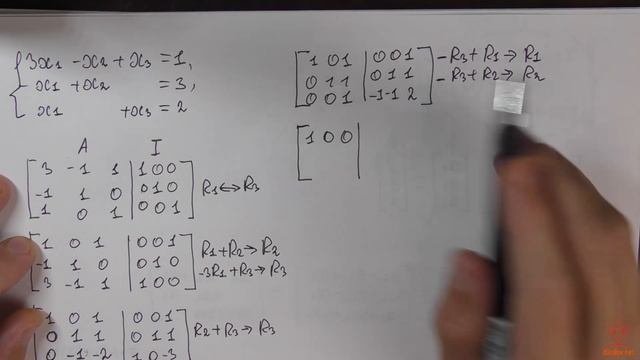 3x1 - x2 + x3 = 1,
-x1 + x2 = 3,
x1 + x3 = 2
A I
3 -1 1 | 1 0 0
-1 1 0 | 0 1 0
1 0 1 | 0 0 1
R1 ↔ R3
1 0 1 | 0 0 1
-1 1 0 | 0 1 0
3 -1 1 | 1 0 0
R1 + R2 → R2
-3R1 + R3 → R3
1 0 1 | 0 0 1
0 1 1 | 0 1 1
0 -1 -2 | 1 0 -3
R2 + R3 → R3
1 0 1 | 0 0 1
0 1 1 | 0 1 1
0 0 1 | -1 -1 2
-R3 + R1 → R1
-R3 + R2 → R2
1 0 0 |